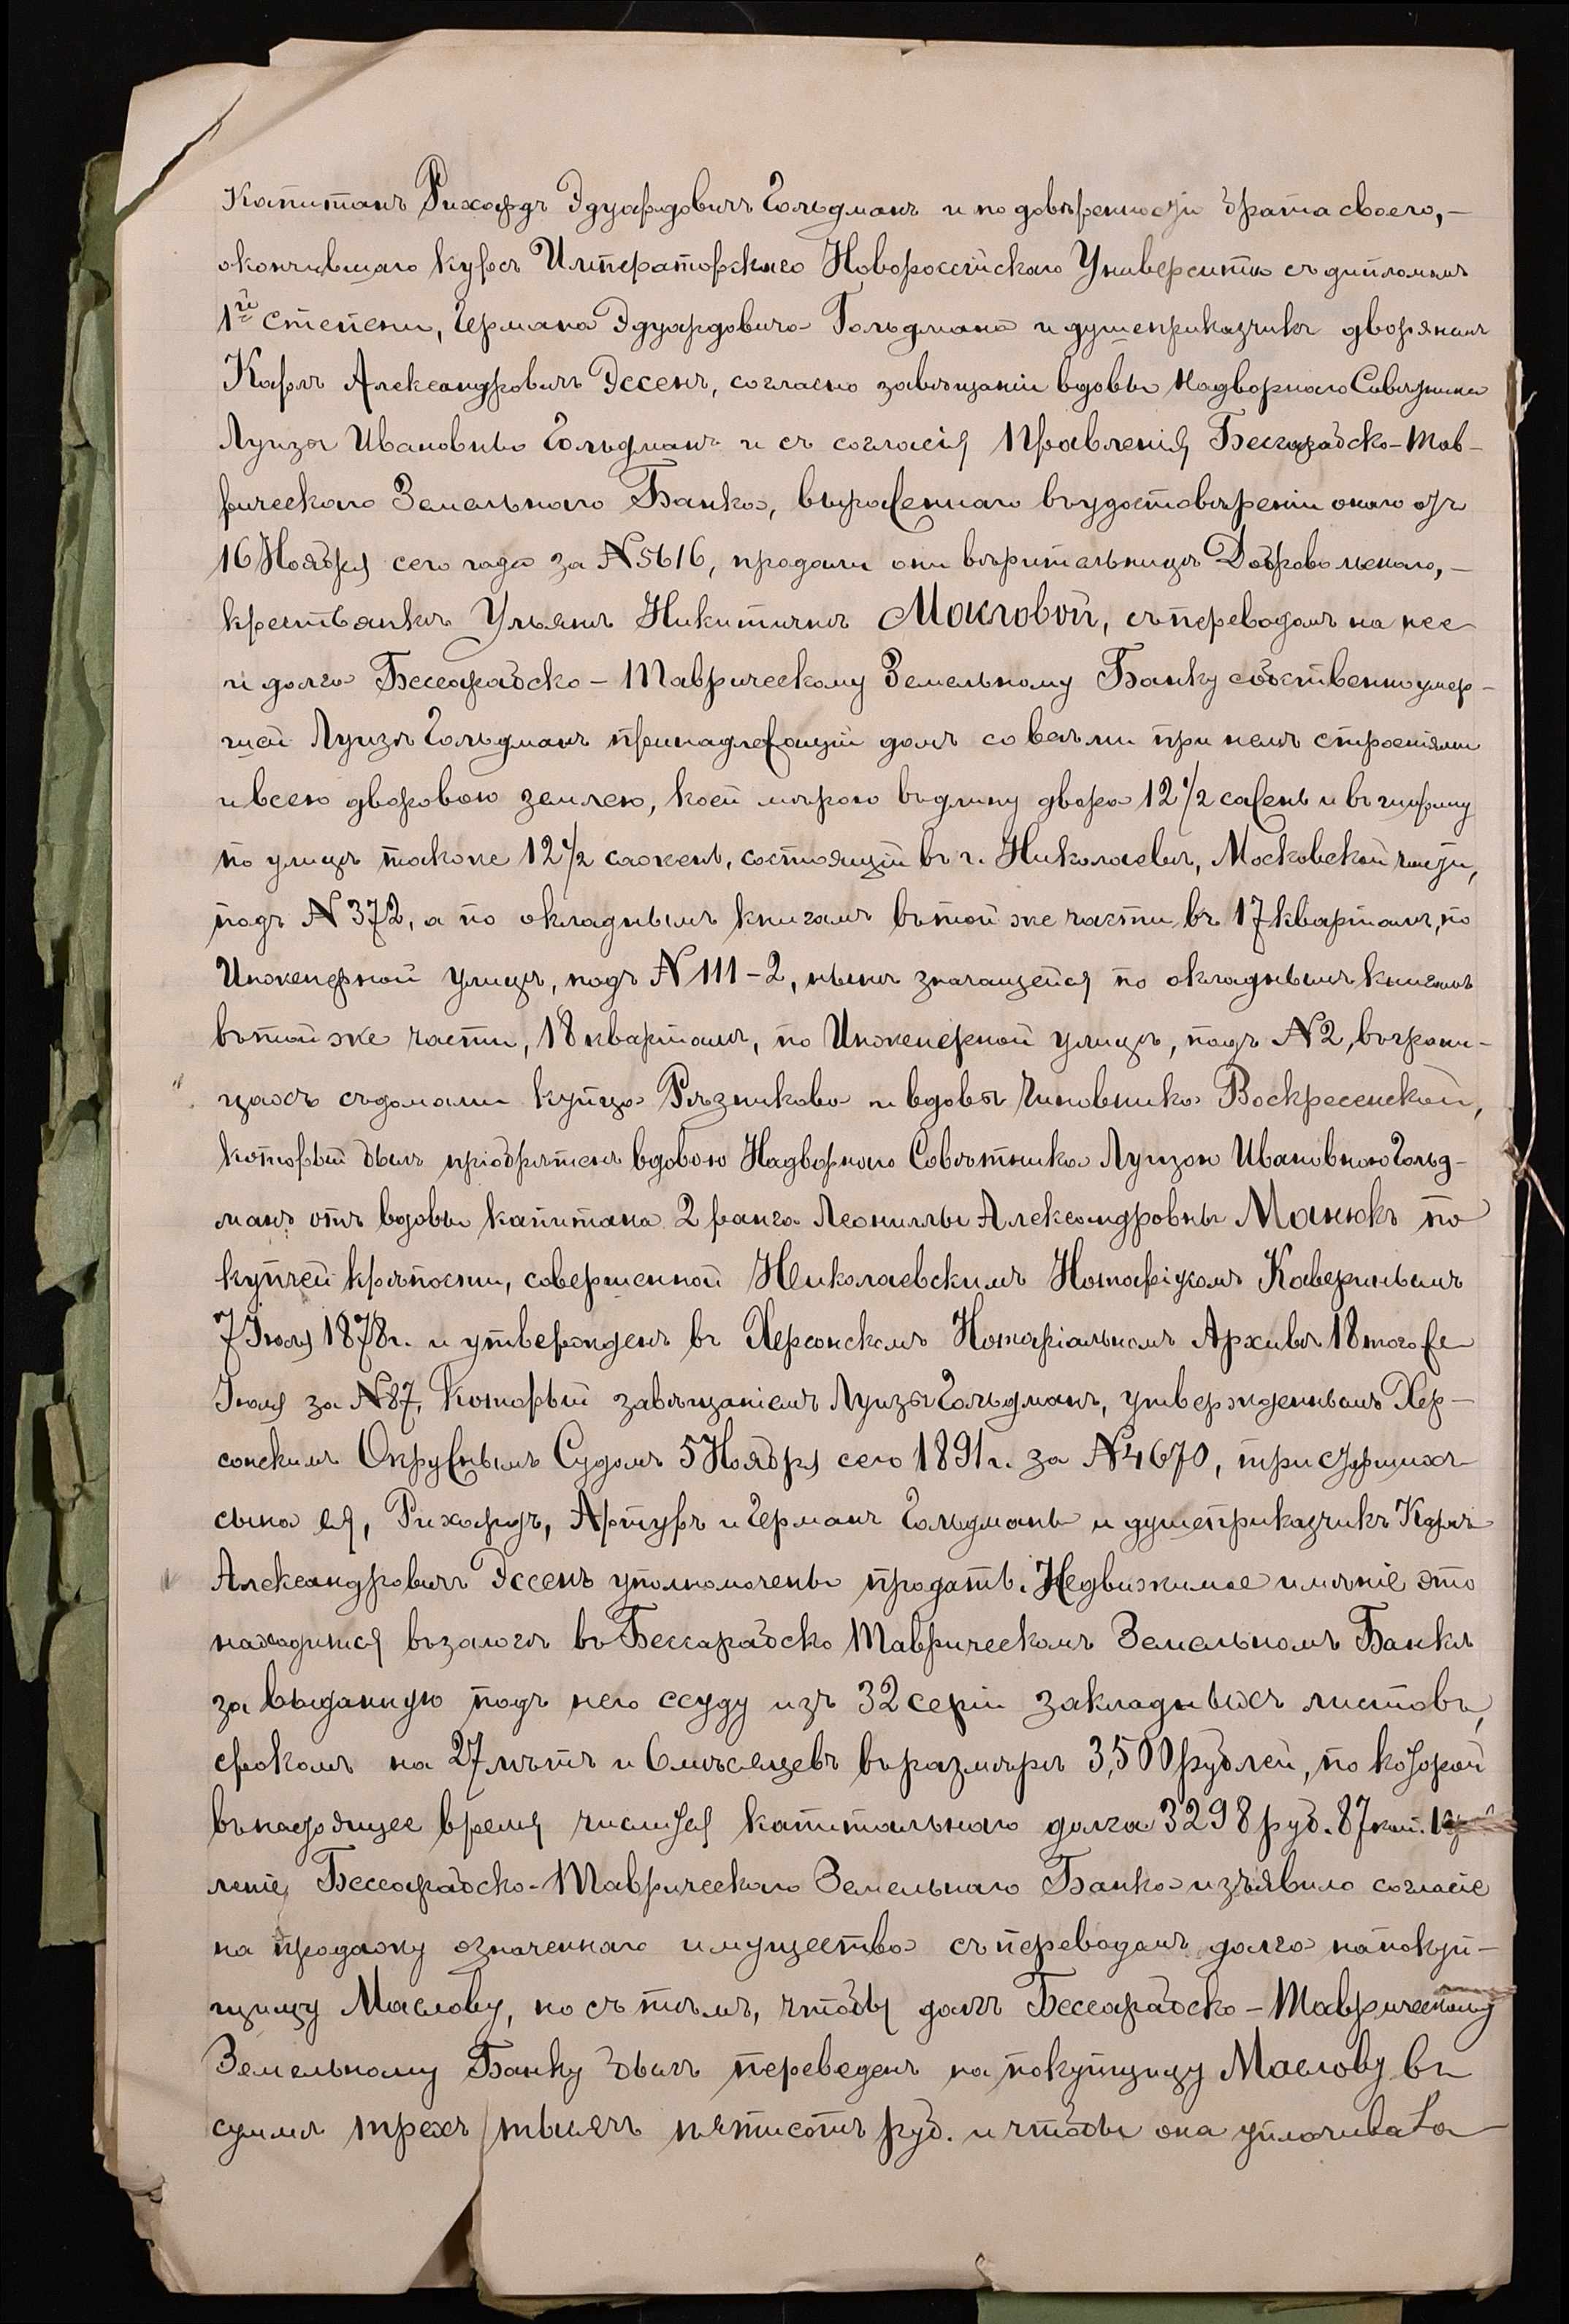 Капитанъ Рихардъ Эдуардовичъ Гольдманъ и по довѣренности брата своего,-
окончившаго курсъ Императорскаго Новороссійскаго Университа съ дипломомъ
1й степени, Германа Эдуардовича Гольдмана и душеприказчикъ дворянинъ
Карлъ Александровичъ Эссенъ, согласно завѣщанію вдовы Надворнаго Совѣтника
Луизы Ивановны Гольдманъ и съ согласія Правленія Бессарабско-Тав-
рическаго Земельнаго Банка, выраженнаго въ удостовѣреніи онаго отъ
16 Ноября сего года за N5616, продали они вѣрительницѣ Добровольскаго,-
крестьянкѣ Ульянѣ Никитичнѣ Масловой, съ переводомъ на нее
и долга Бессарабско-Таврическому Земельному Банку собственно умер-
шей Луизѣ Гольдманъ принадлежащій домъ со всѣми при немъ строеніями
и всею дворовою землею, коей мѣрою въ длину двора 12 1/2 сажень и въ ширину
по улицѣ также 12 1/2 сажень, состоящій въ г. Николаевѣ, Московской части,
подъ N 372, а по окладнымъ книгамъ въ той же части, въ 17 кварталѣ, по
Инженерной улицѣ, подъ N 111-2, нынѣ значащейся по окладнымъ книгамъ
въ той же части, 18 кварталѣ, по Инженерной улицѣ, подъ N 2, въ грани-
цахъ съ домами купца Рѣзникова и вдовы чиновника Воскресенской,
который былъ пріобрѣтенъ вдовою Надворнаго Совѣтника Луизою Ивановною Гольд-
манъ отъ вдовы капитана 2 ранга Леониллы Александровны Манюкъ по
купчей крѣпости, совершенной Николаевскимъ Нотаріусомъ Каверинымъ
7 Іюля 1878г. и утвержденъ въ Херсонскомъ Нотаріальномъ Архивѣ 18 того же
Іюля за N87, который завѣщаніемъ Луизы Гольдманъ, утвержденнымъ Хер-
сонскимъ Окружнымъ Судомъ 5 Ноября сего 1891г. за N4670, три старшихъ
сына ея, Рихардъ, Артуръ и Германъ Гольдманы и душеприказчикъ Карлъ
Александровичъ Эссенъ уполномочены продать. Недвижимое имѣніе это
находится въ залогѣ въ Бессарабско Таврическомъ Земельномъ Банкѣ
за выданную подъ него ссуду изъ 32 серіи закладныхъ листовъ,
срокомъ на 27 лѣтъ и 6 мѣсяцевъ въ размѣрѣ 3,500 рублей, по которой
въ настоящее время числится капитальнаго долга 3298 руб. 87 коп.
леніе Бессарабско-Таврическаго Земельнаго Банка изъявило согласіе
на продажу означеннаго имущества съ переводомъ долга на покуп-
щицу Маслову, но съ тѣмъ, чтобы долгъ Бессарабско-Таврическому
Земельному Банку былъ переведенъ на покупщицу Маслову въ
суммѣ трехъ тысячъ пятисотъ руб. и чтобы она уплачивала